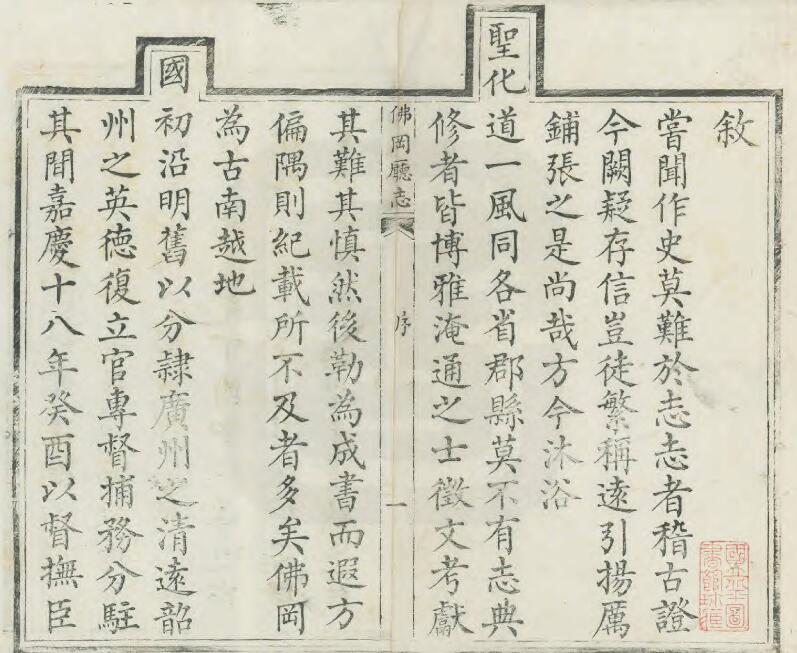 敘
嘗聞作史莫難於志志者稽古證
今闕疑存信豈徒繁稱遠引揚厲
鋪張之是尚哉方今沐浴
聖化
道一風同各省郡縣莫不有志典
修者皆博雅淹通之士徵文考獻
佛岡廳志
序
一
其難其慎然後勒為成書而遐方
偏隅則紀載所不及者多矣佛岡
為古南越地
國
初沿明舊以分隸廣州之清遠韶
州之英德復立官專督捕務分駐
其間嘉慶十八年癸酉以督撫臣